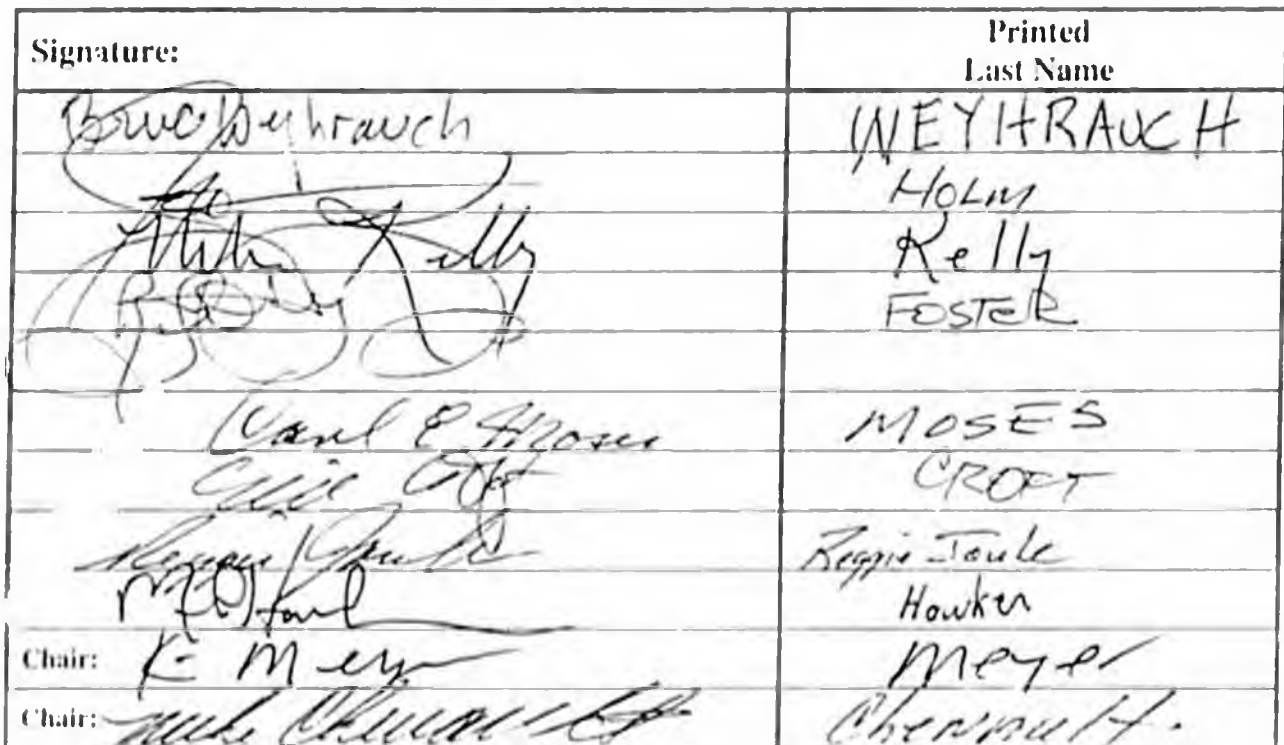 Signature: Printed Last Name
Bruce Weyhrauch WEYHRAUCH
HOLM
Mike Kelly Kelly
FOSTER
Carl E Moses MOSES
Eric Croft CROFT
Reggie Joule Reggie Joule
Hawker
Chair: K Meyer Meyer
Chair: Mike Chenault Chenault